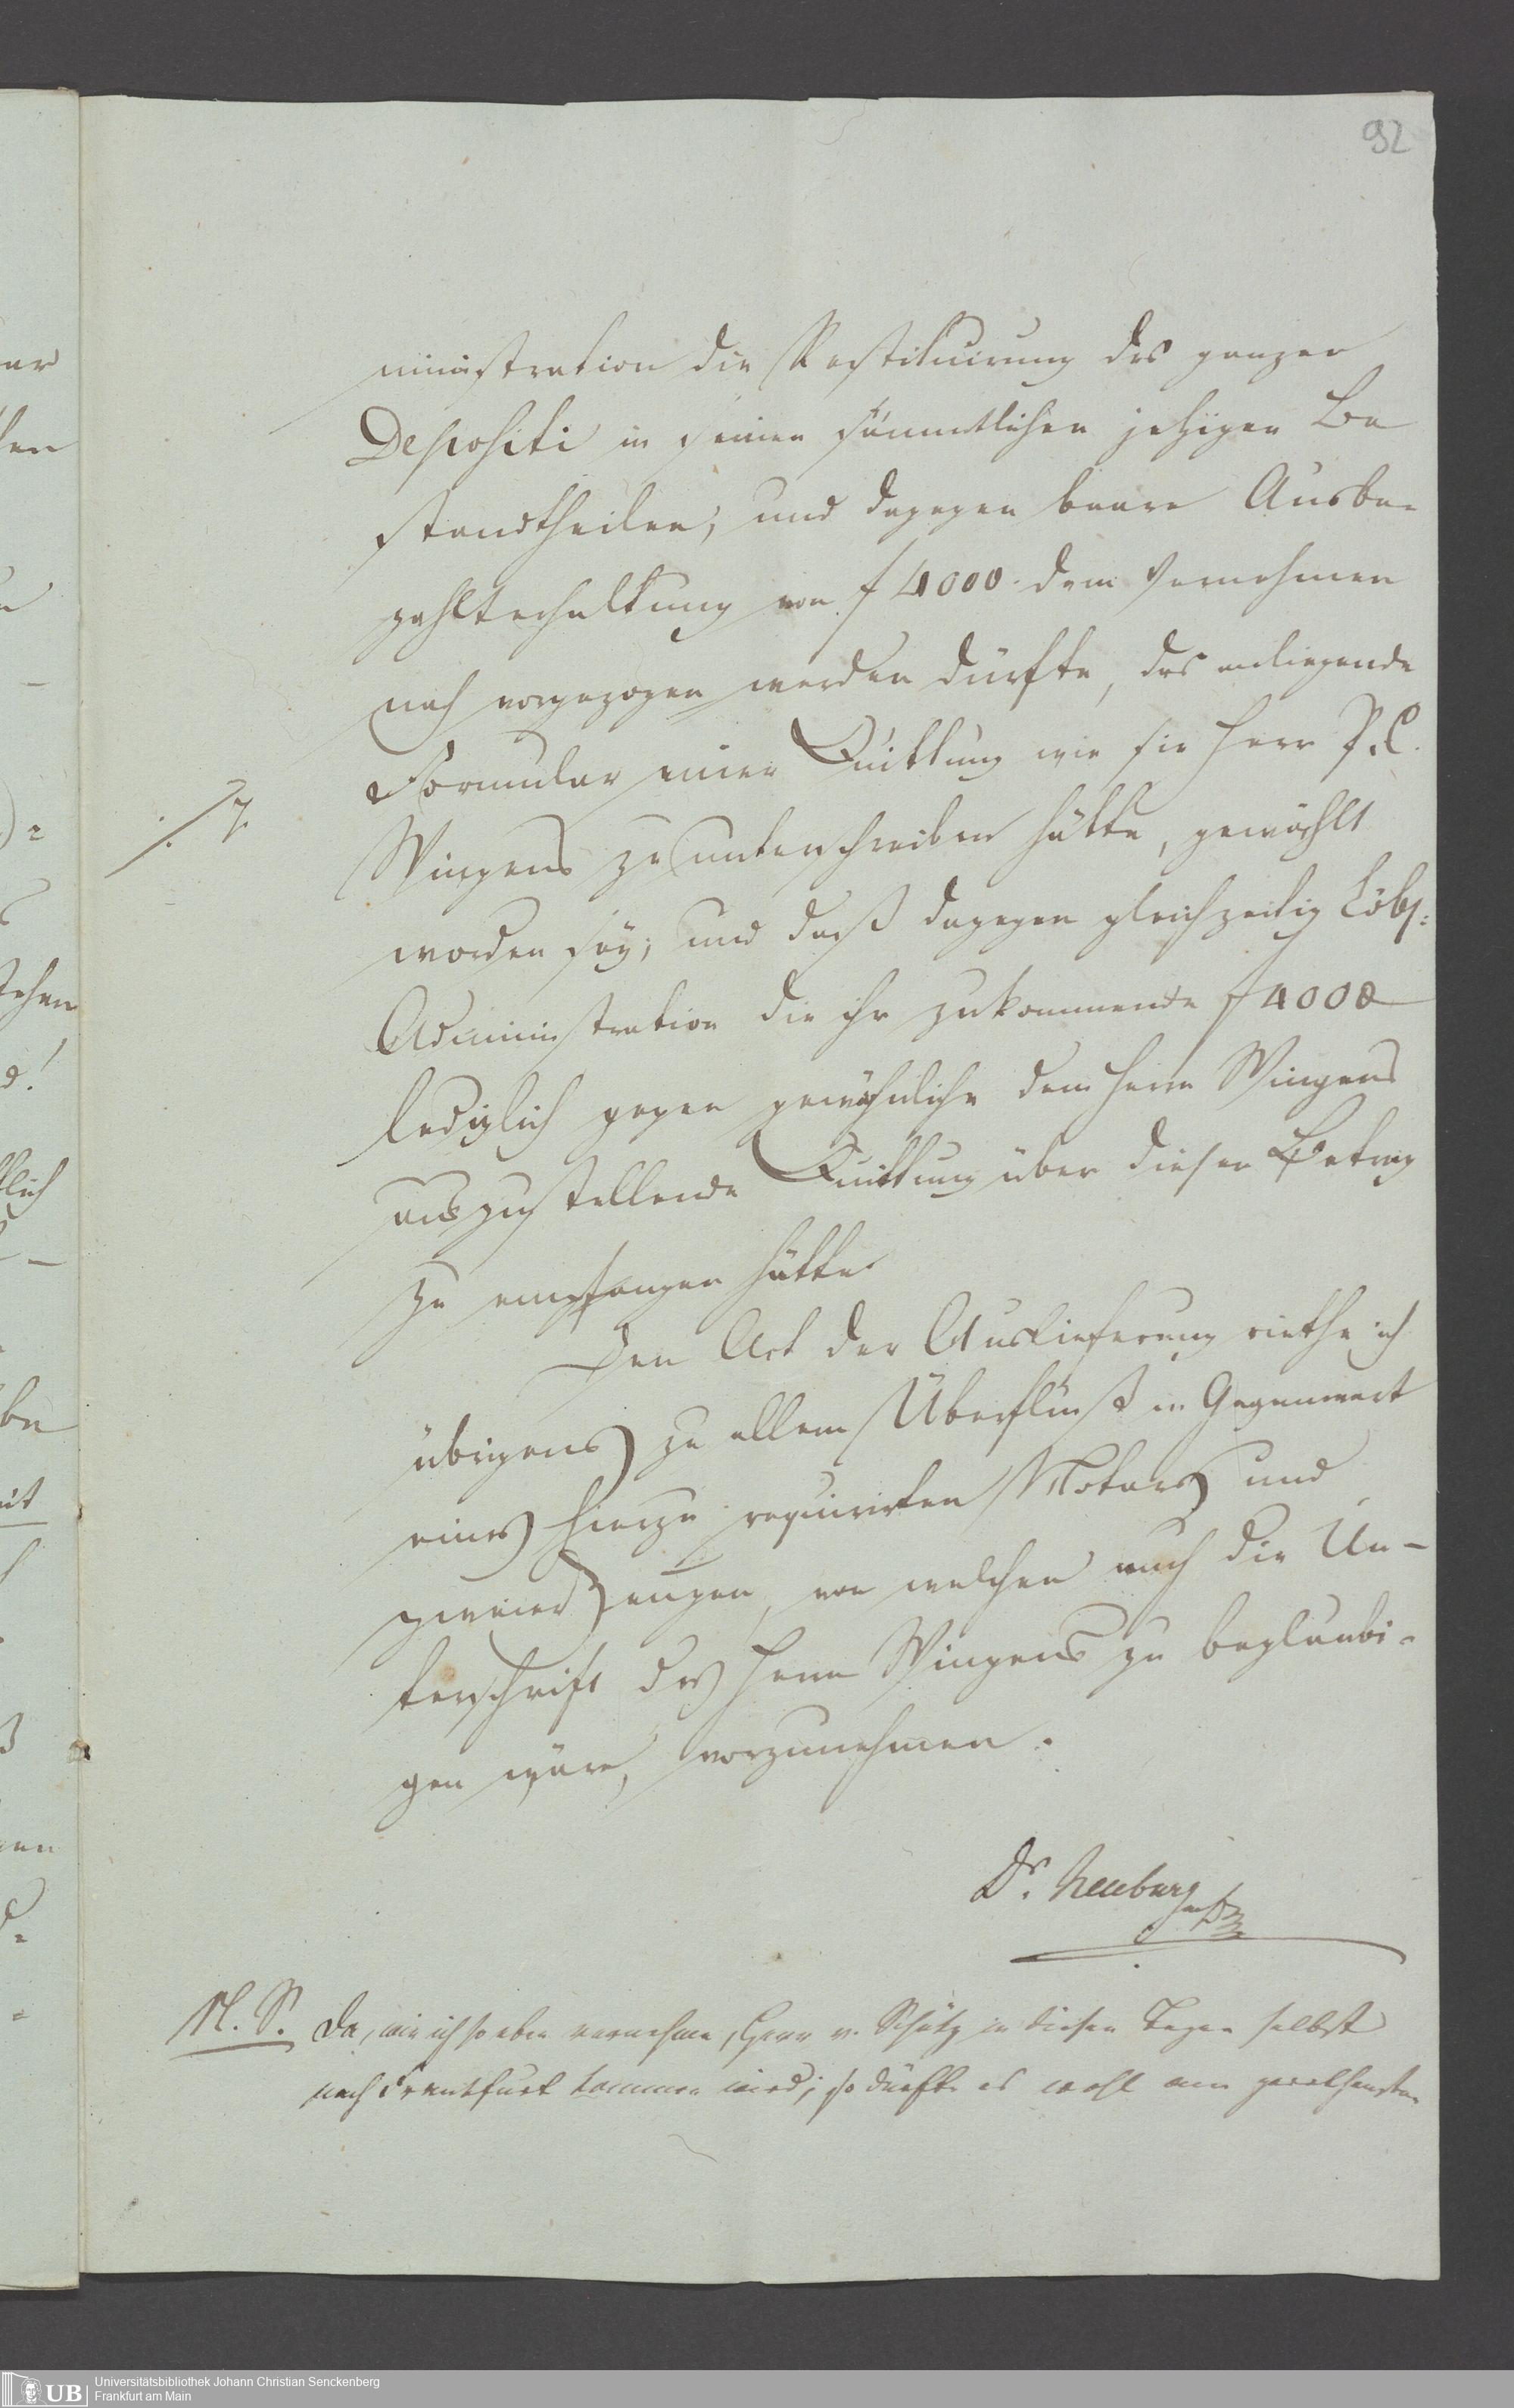 92
ministration die Restituirung des ganzen
Depositi in seinen sämmtlichen jetzigen Be
standtheilen, und dagegen baare Ausbe-
zahlterhaltung von f 4000. dem Vernehmen
nach vorgezogen werden dürfte, das anliegende
Formular einer Quittung wie sie Herr P. C.
./. 7.
Wingens zu unterschreiben hätte, gewählt
worden sey; und daß dagegen gleichzeitig Löbl:
Administration die ihr zukommende f 4000
lediglich gegen gewöhnliche dem Herrn Wingens
auszustellende Quittung über diesen Betrag
zu empfangen hätte
Den Act der Auslieferung riethe ich
übrigens zu allem Überfluß in Gegenwart
eines hierzu requirirten Notars und
zweier Zeugen, von welchen auch die Un-
terschrift des Herrn Wingens zu beglaubi-
gen wäre, vorzunehmen.
Dr. Neuburg
N. S. Da, wie ich so eben vernehme, Herr v. Schütz in diesen Tagen selbst
nach Frankfurt kommen wird; so dürfte es wohl am gerathensten
UB
Universitätsbibliothek Johann Christian Senckenberg
Frankfurt am Main